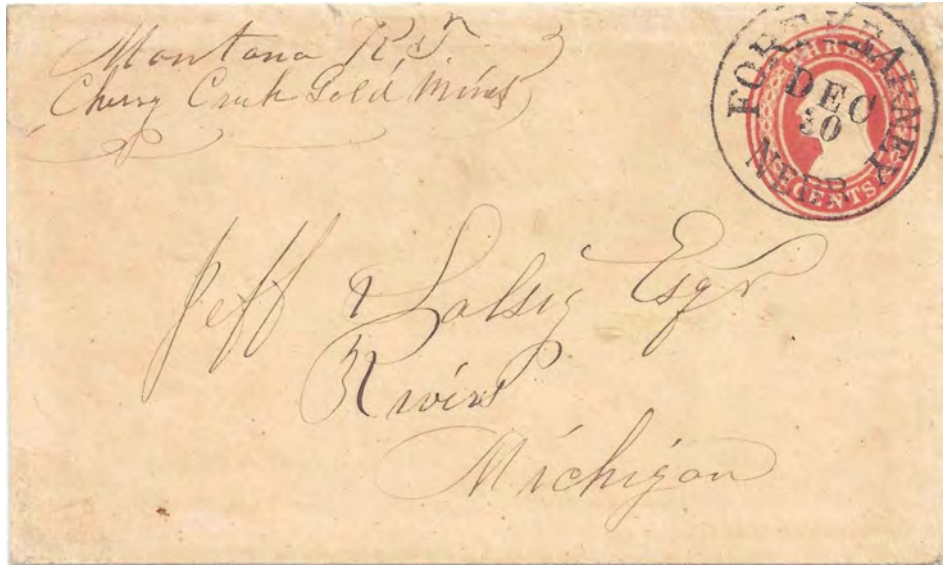 Montana K.T.
Cherry Creek Gold Mines
FORT KEARNEY
DEC
NEBR
THREE
CENTS
Jeff
Esqr
Rivers
Michigan